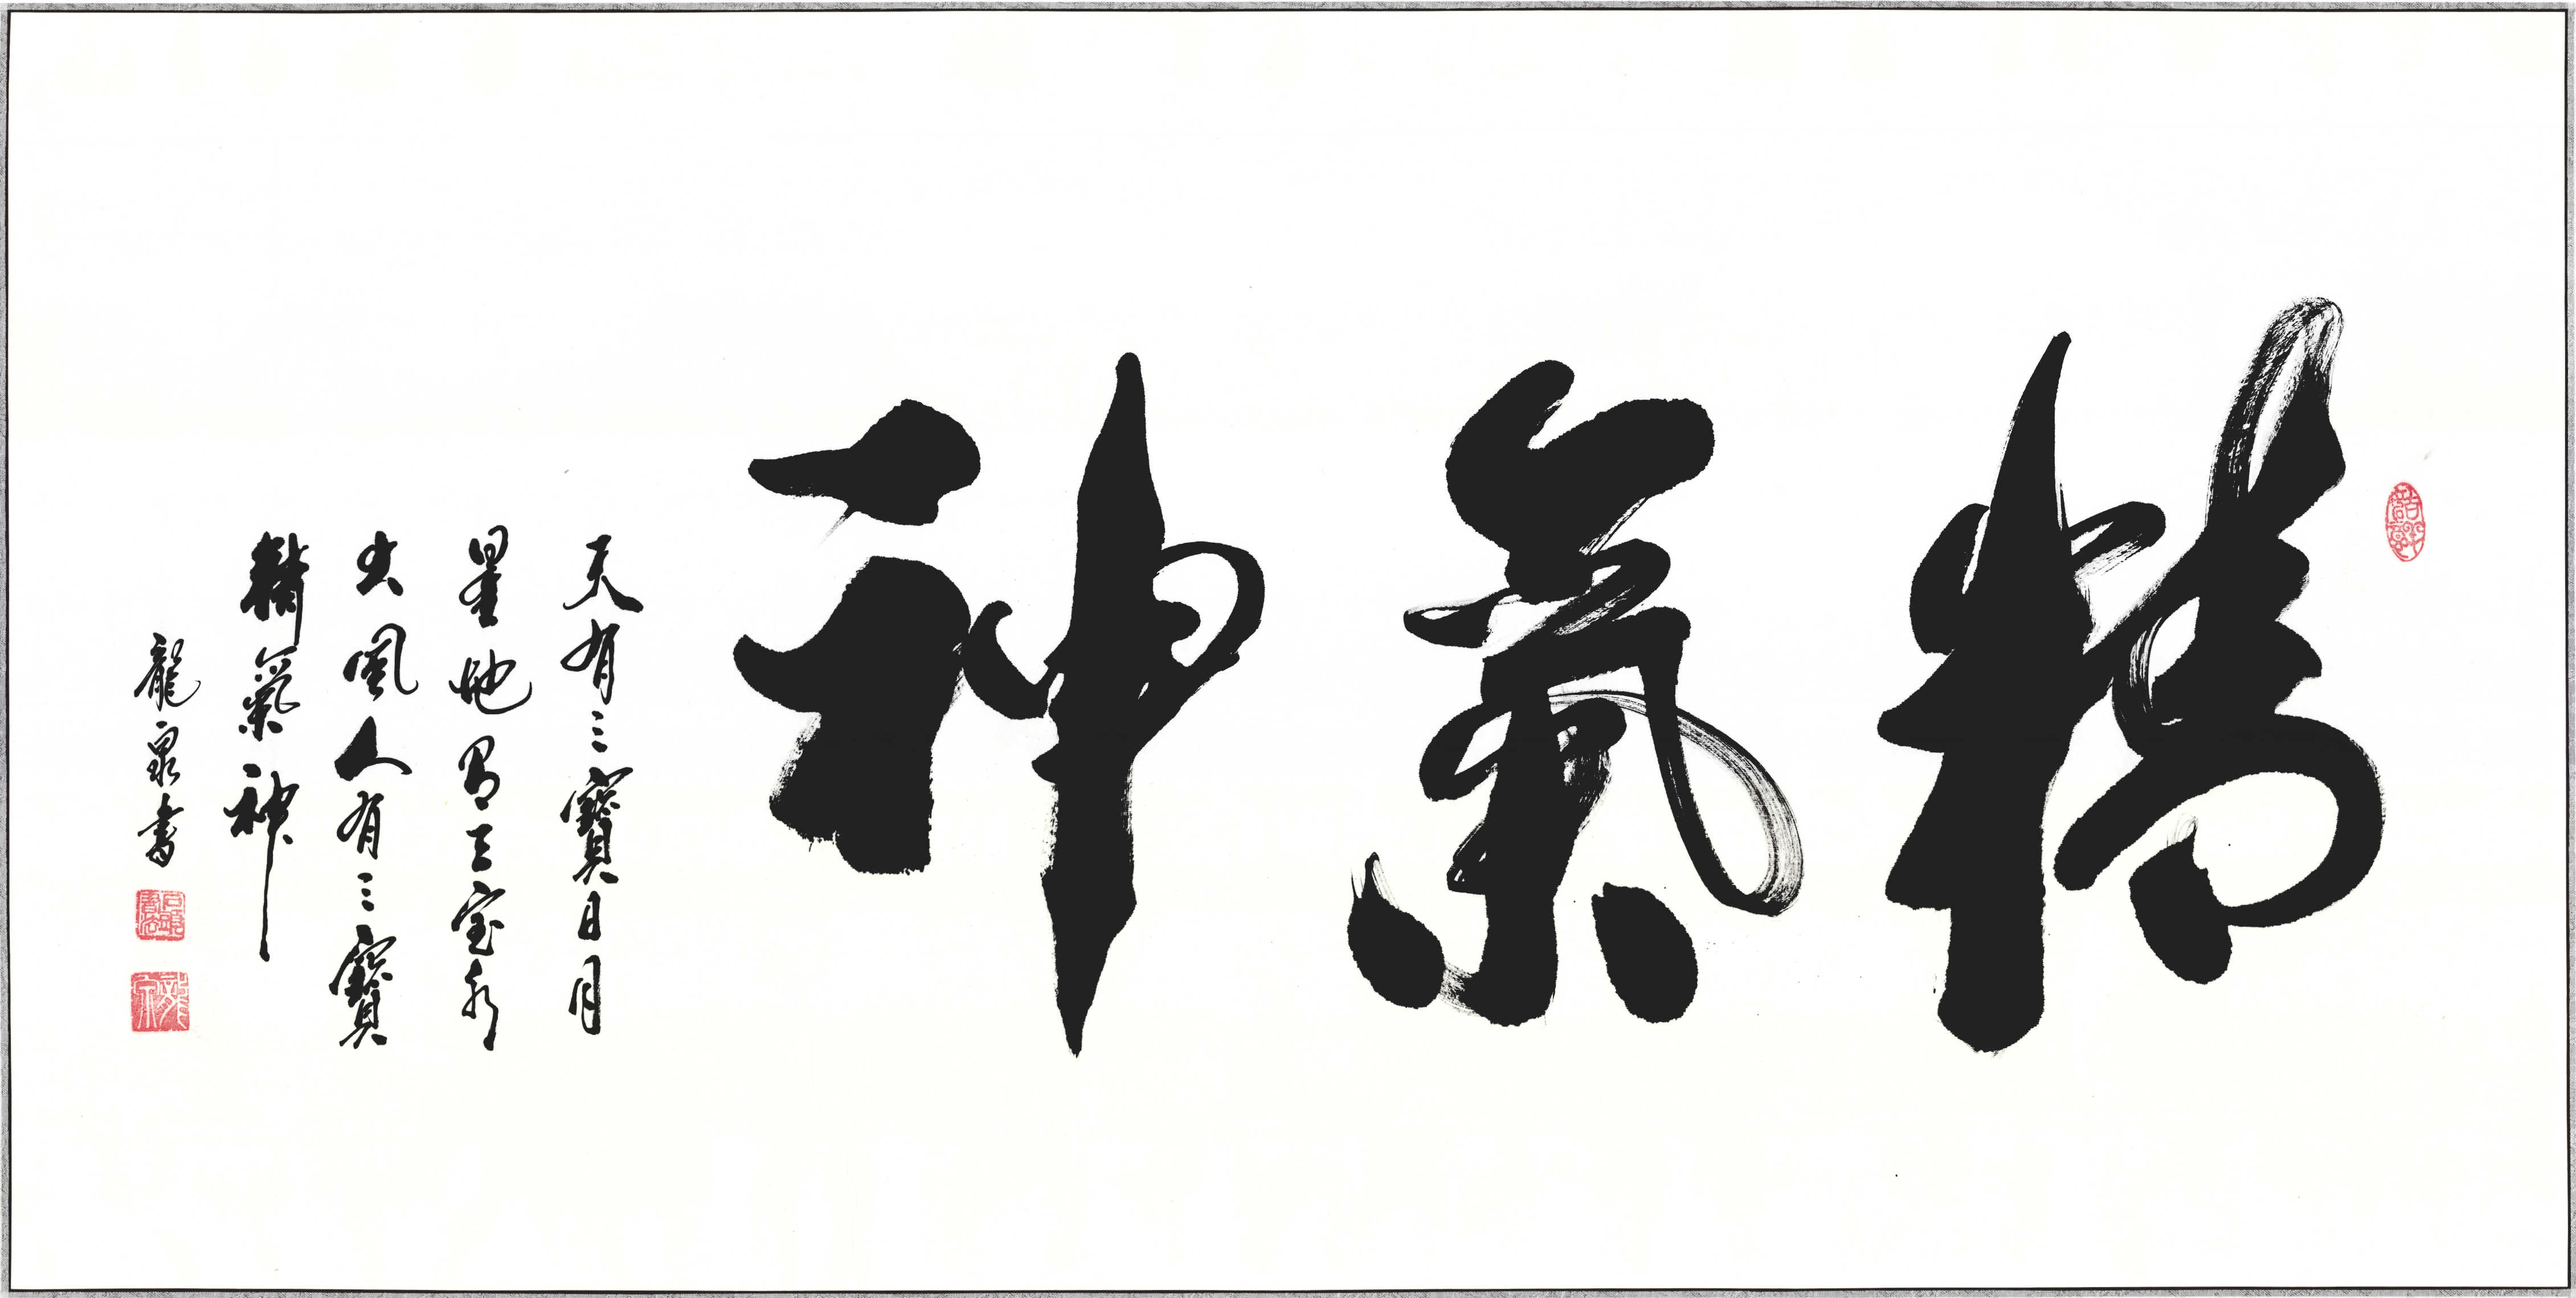 精氣神
天有三寶日月
星地有三宝水
火風人有三寶
精氣神
龍泉書